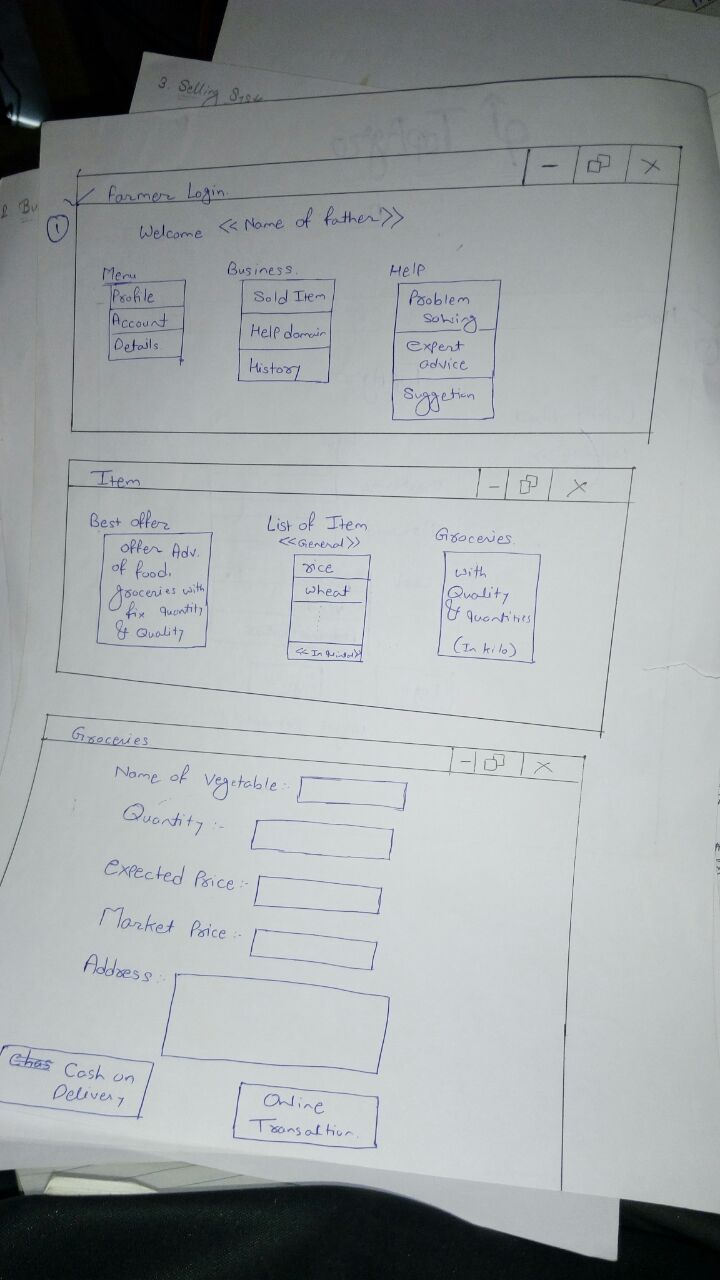 3. Selling
2 Bu
Farmer Login.
1
Welcome << Name of father >>
Menu
Profile
Account
Details.
Business.
Sold Item
Help domain
History
Help
Problem
solving
Expert
advice
Suggetion
Item
Best offer
offer Adv.
of food,
groceries with
fix quantity
& Quality
List of Item
<<General>>
rice
wheat
Groceries.
with
Quality
& quantities
(In kilo)
Groceries
Name of Vegetable:-
Quantity :-
Expected Price:-
Market Price:-
Address:-
Cash on
Delivery
Online
Transaltion.